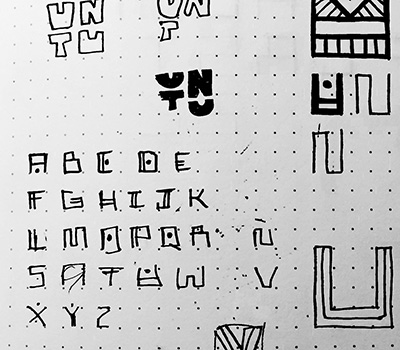 UN
TU
UN
T
UN
TU
U N
N
A B C D E
F G H I J K
L M O P Q R N
S T U W V
X Y Z
U